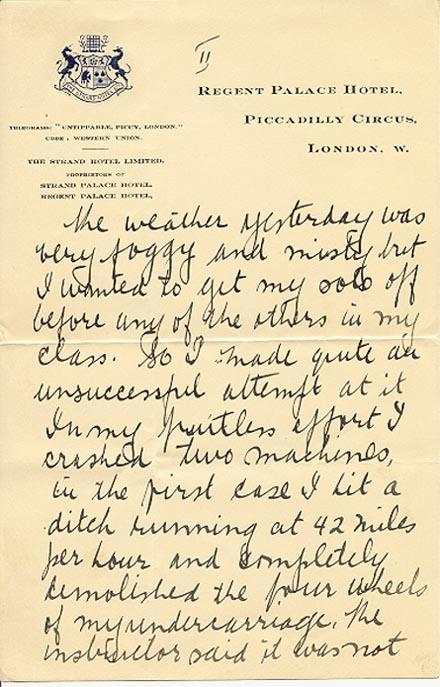 II
REGENT PALACE HOTEL,
PICCADILLY CIRCUS,
LONDON, W.
TELEGRAMS: "UNTIPPABLE, PICCY, LONDON."
CODE: WESTERN UNION.
THE STRAND HOTEL LIMITED.
PROPRIETORS OF
STRAND PALACE HOTEL.
REGENT PALACE HOTEL,
The weather yesterday was
very foggy and misty but
I wanted to get my solo off
before any of the others in my
class. So I made quite an
unsuccessful attempt at it
In my fruitless effort I
crashed two machines,
in the first case I hit a
ditch running at 42 miles
per hour and completely
demolished the four wheels
of my undercarriage. The
instructor said it was not